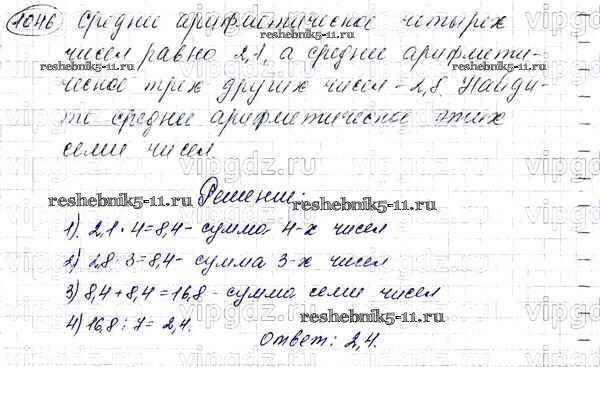 1046 Среднее арифметическое четырех
чисел равно 2,1, а среднее арифмети-
reshebnik5-11.ru reshebnik5-11.ru
ческое трех других чисел - 2,8. Найди-
те среднее арифметическое этих
семи чисел
vipgdz.ru vipgdz.ru vipgdz.ru
Решение:
reshebnik5-11.ru reshebnik5-11.ru
1). 2,1 · 4 = 8,4 - сумма 4-х чисел
2) 2,8 · 3 = 8,4 - сумма 3-х чисел
3) 8,4 + 8,4 = 16,8 - сумма семи чисел
reshebnik5-11.ru
4) 16,8 : 7 = 2,4.
Ответ: 2,4.
vipgdz.ru vipgdz.ru vipgdz.ru